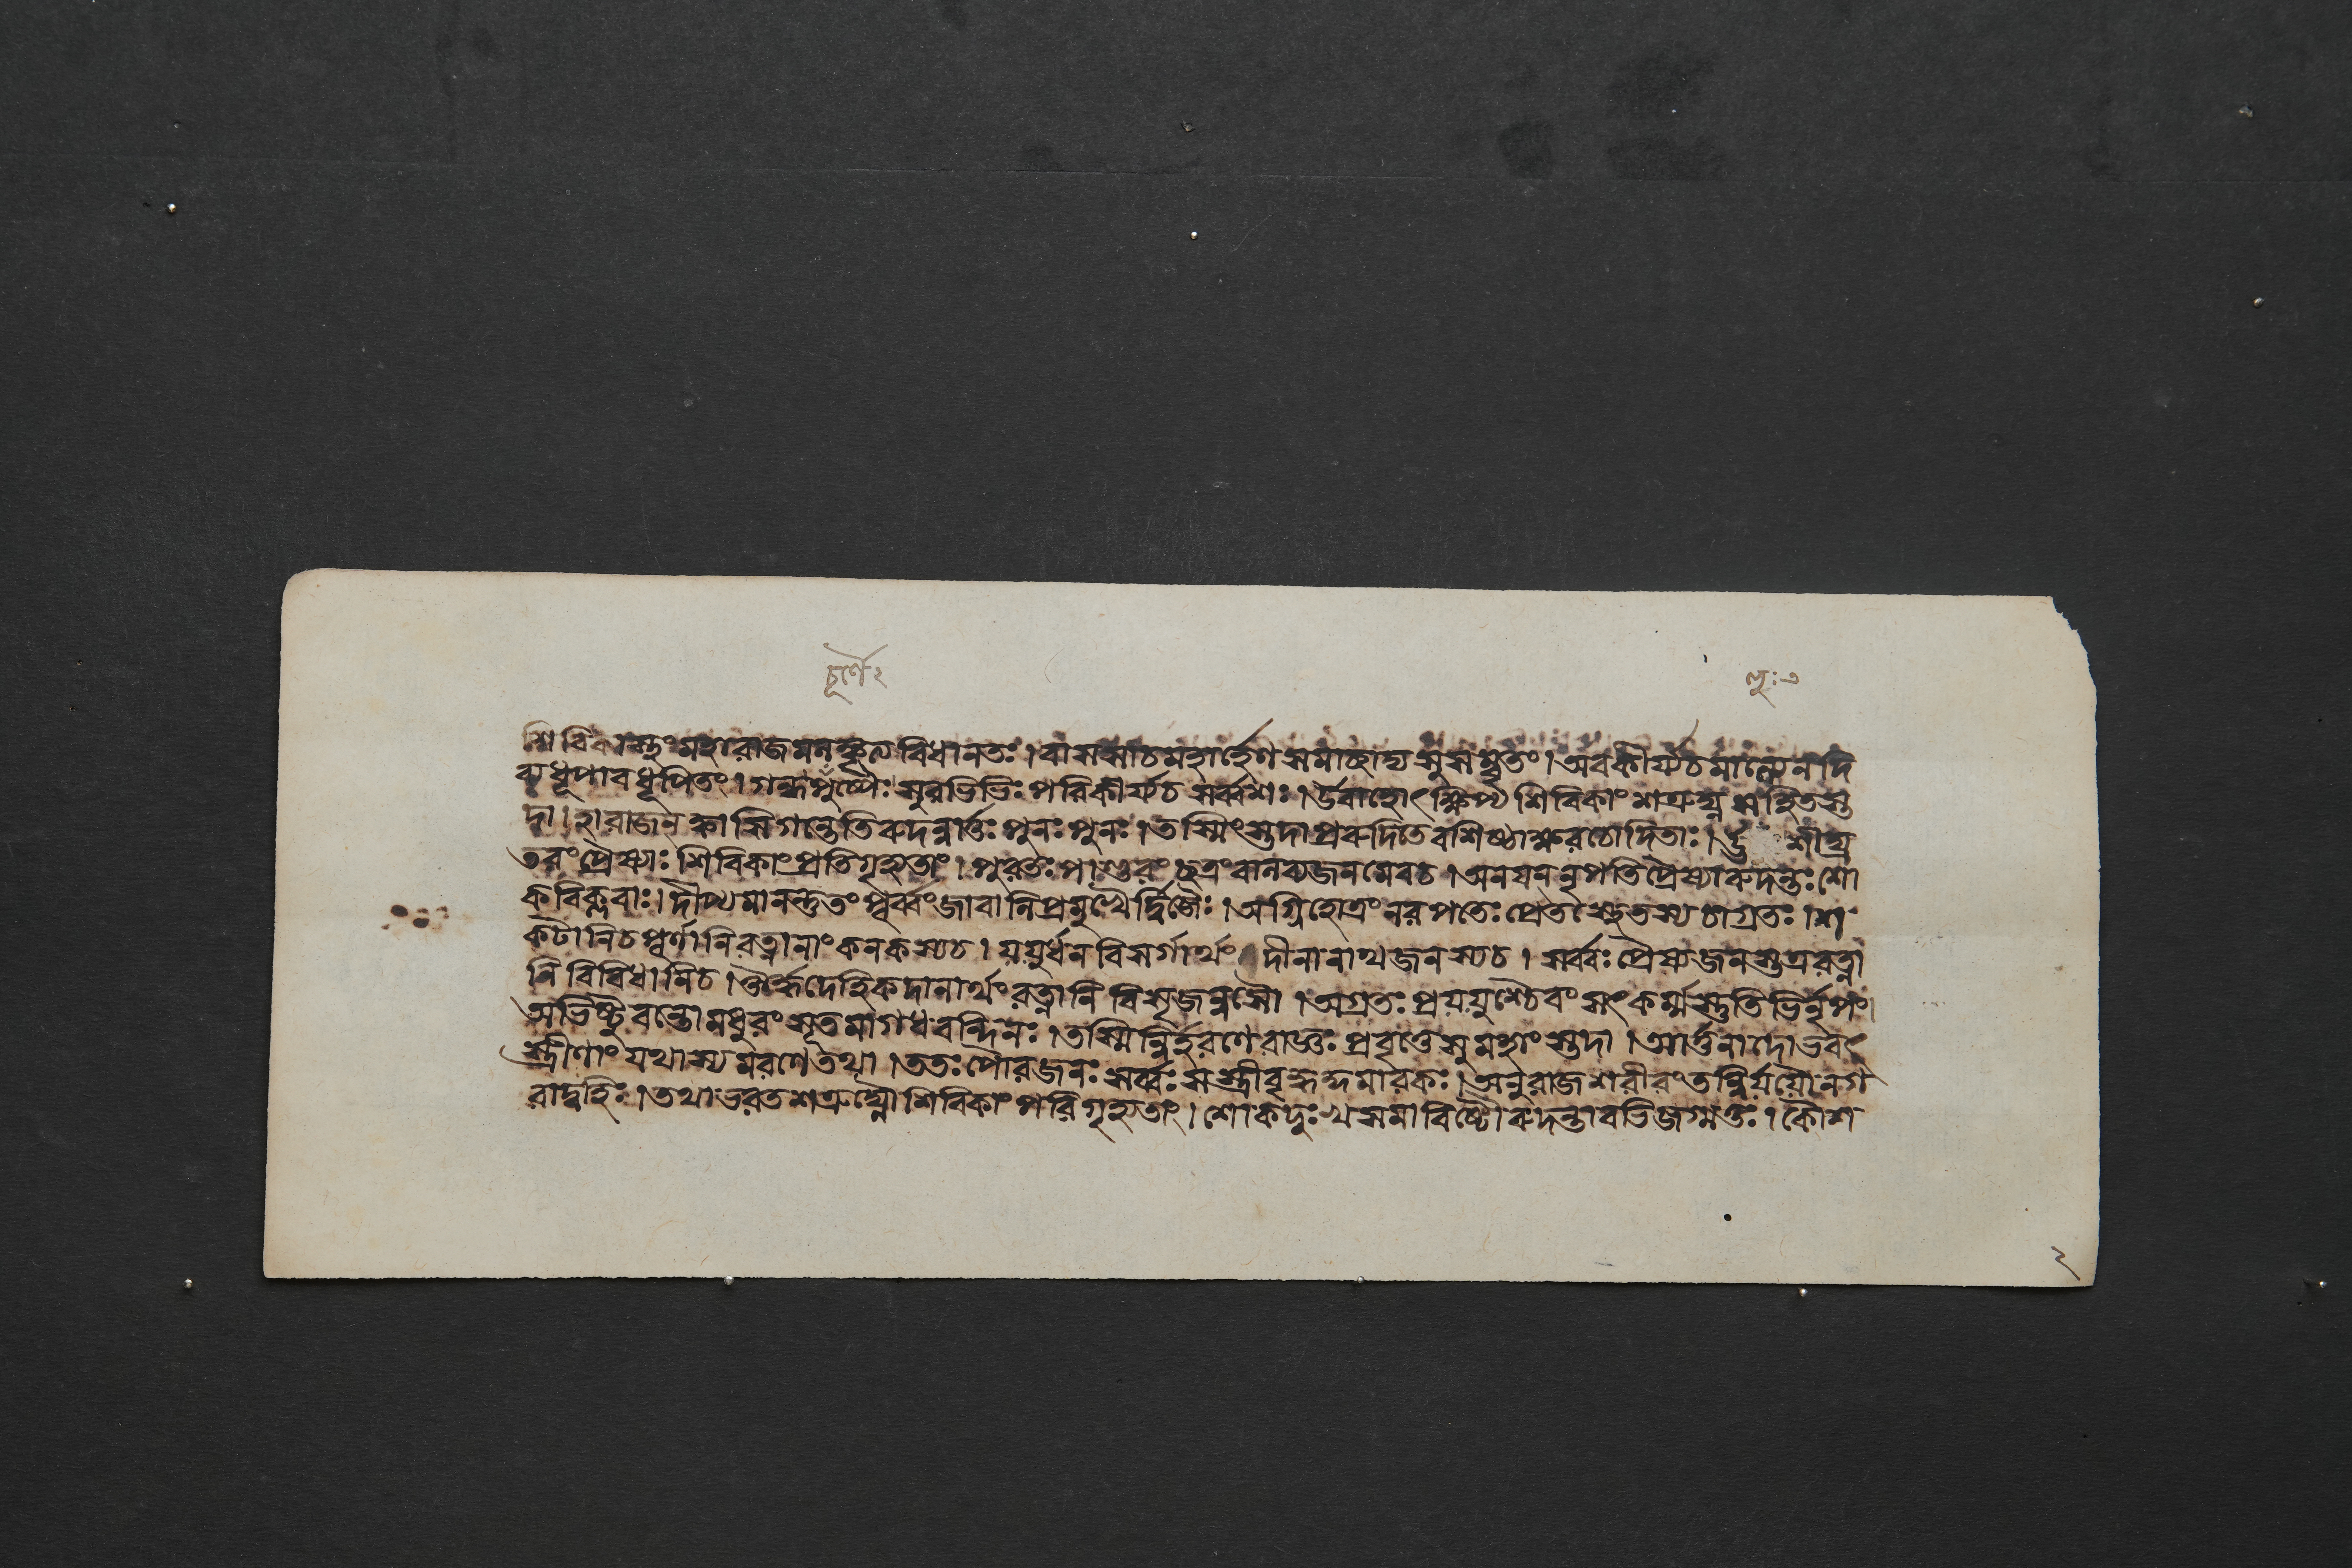 চূর্ণৈঃ
শিবিকাস্তুং মহারাজমনঙ্কৃত্য বিধানতঃ। বাসসাচমহার্হেণ সমাচ্ছাদ্য সুসম্বৃতং। অবকীর্য্যচমাল্যেন দি
ব্যধূপাবধূপিতং। গন্ধপুষ্পৈঃ সুরভিভিঃ পরিকীর্য্যচ সর্ব্বশঃ। উবাহোৎক্ষিপ্য শিবিকাং শত্রুঘ্ন সহিতস্ত
দা। হা রাজন ক্কাসিগন্তেতিরুদন্নার্ত্তঃ পুনঃ পুনঃ। তস্মিংস্তদাপ্ররুদিতেবশিষ্ঠাক্ষরচোদিতাঃ। শীঘ্র
তরংপ্রৈষ্যাঃ শিবিকাংপ্রতিগৃহ্যতাং। পুরতঃ পাণ্ডুরং ছত্রং বালব্যজনমেবচ। অনযন্নৃপতিপ্রৈষ্যারুদন্তঃ শো
কবিক্লবাঃ। দীপ্যমানন্তুতং পূর্ব্বংজাবানিপ্রমুখৈর্দ্বিজৈঃ। অগ্নিহোত্রং নরপতেঃ প্রেতস্থেতস্যচাগ্রতঃ। শ
কটানিচপূর্ণানিরত্নানাং কনকস্যচ। যযুর্ধন বিসর্গার্থং দীনানাথজনস্যচ। সর্ব্বঃ প্রৈষ্যজনস্তত্ররত্না
নি বিবিধানিচ। ঔর্দ্ধদেহিকদানার্থং রত্নানি বিসৃজন্নসৌ। অগ্রতঃ প্রযযুশ্চৈবং সৎকর্ম্মস্তুতিভির্নৃপং।
অভিষ্টুবন্তোমধুরং সূতমাগধবন্দিনঃ। তস্মিন্নির্হরণেরাজ্ঞঃ প্রবৃত্তেসুমহাংস্তদা। আর্ত্তনাদোভবৎ
স্ত্রীণাং যথাস্যমরণেতথা। ততঃপৌরজনঃ সর্ব্বঃ সস্ত্রীবৃদ্ধকুমারকঃ। অনুরাজশরীরংতন্নির্যযৌনগ
রাদ্বহিঃ। তথাভরতশত্রুঘ্নৌ শিবিকাং পরিগৃহ্যতাং। শোকদুঃখসমাবিষ্টৌরুদন্তাবভিজগ্মতুঃ। কৌশ
২